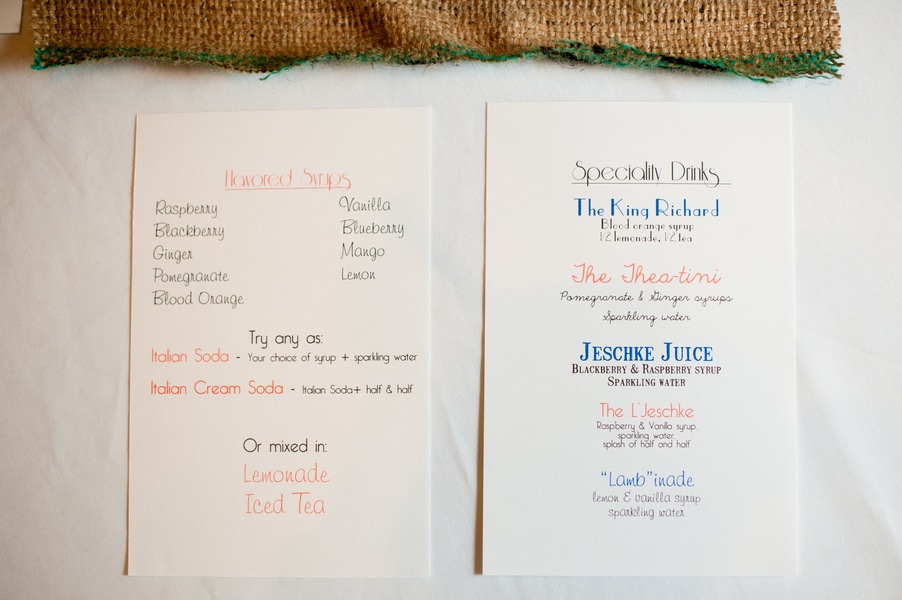 Flavored Syrups
Raspberry
Blackberry
Ginger
Pomegranate
Blood Orange
Vanilla
Blueberry
Mango
Lemon
Try any as:
Italian Soda - Your choice of syrup + sparkling water
Italian Cream Soda - Italian Soda+ half & half
Or mixed in:
Lemonade
Iced Tea
Speciality Drinks
The King Richard
Blood orange syrup
1/2 lemonade, 1/2 tea
The Thea-tini
Pomegranate & Ginger syrups
Sparkling water
JESCHKE JUICE
BLACKBERRY & RASPBERRY SYRUP
SPARKLING WATER
The L'Jeschke
Raspberry & Vanilla syrup.
sparkling water.
splash of half and half
"Lamb"inade
lemon & vanilla syrup
sparkling water